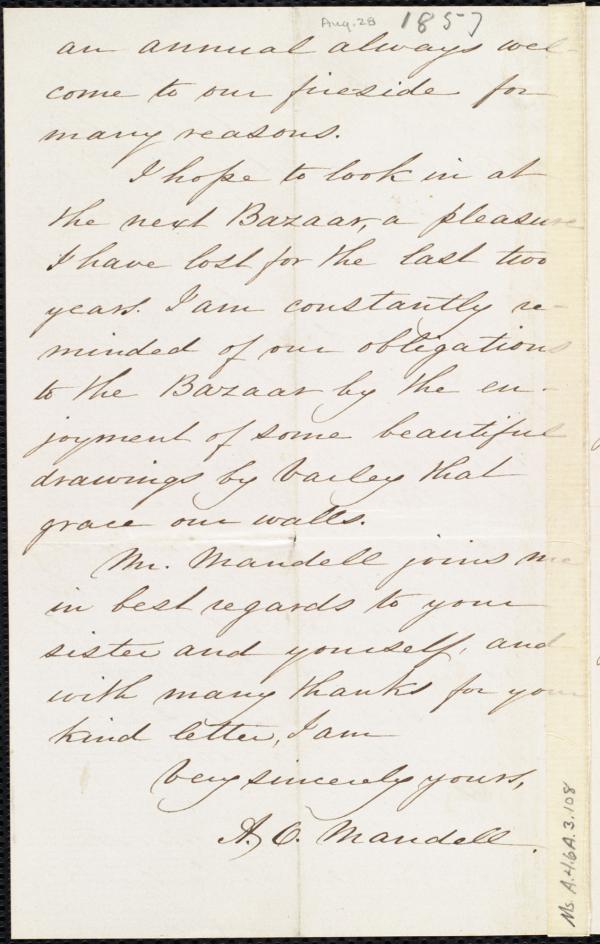 Aug. 28 1857
an annual always wel-
come to our fireside for
many reasons.
I hope to look in at
the next Bazaar, a pleasure
I have lost for the last two
years. I am constantly re-
minded of our obligations
to the Bazaar by the en-
joyment of some beautiful
drawings by Varley that
grace our walls.
Mr. Mandell joins me
in best regards to your
sister and yourself, and
with many thanks for your
kind letter, I am
Very sincerely yours,
A. C. Mandell.
Ms. A.4.6A.3.108